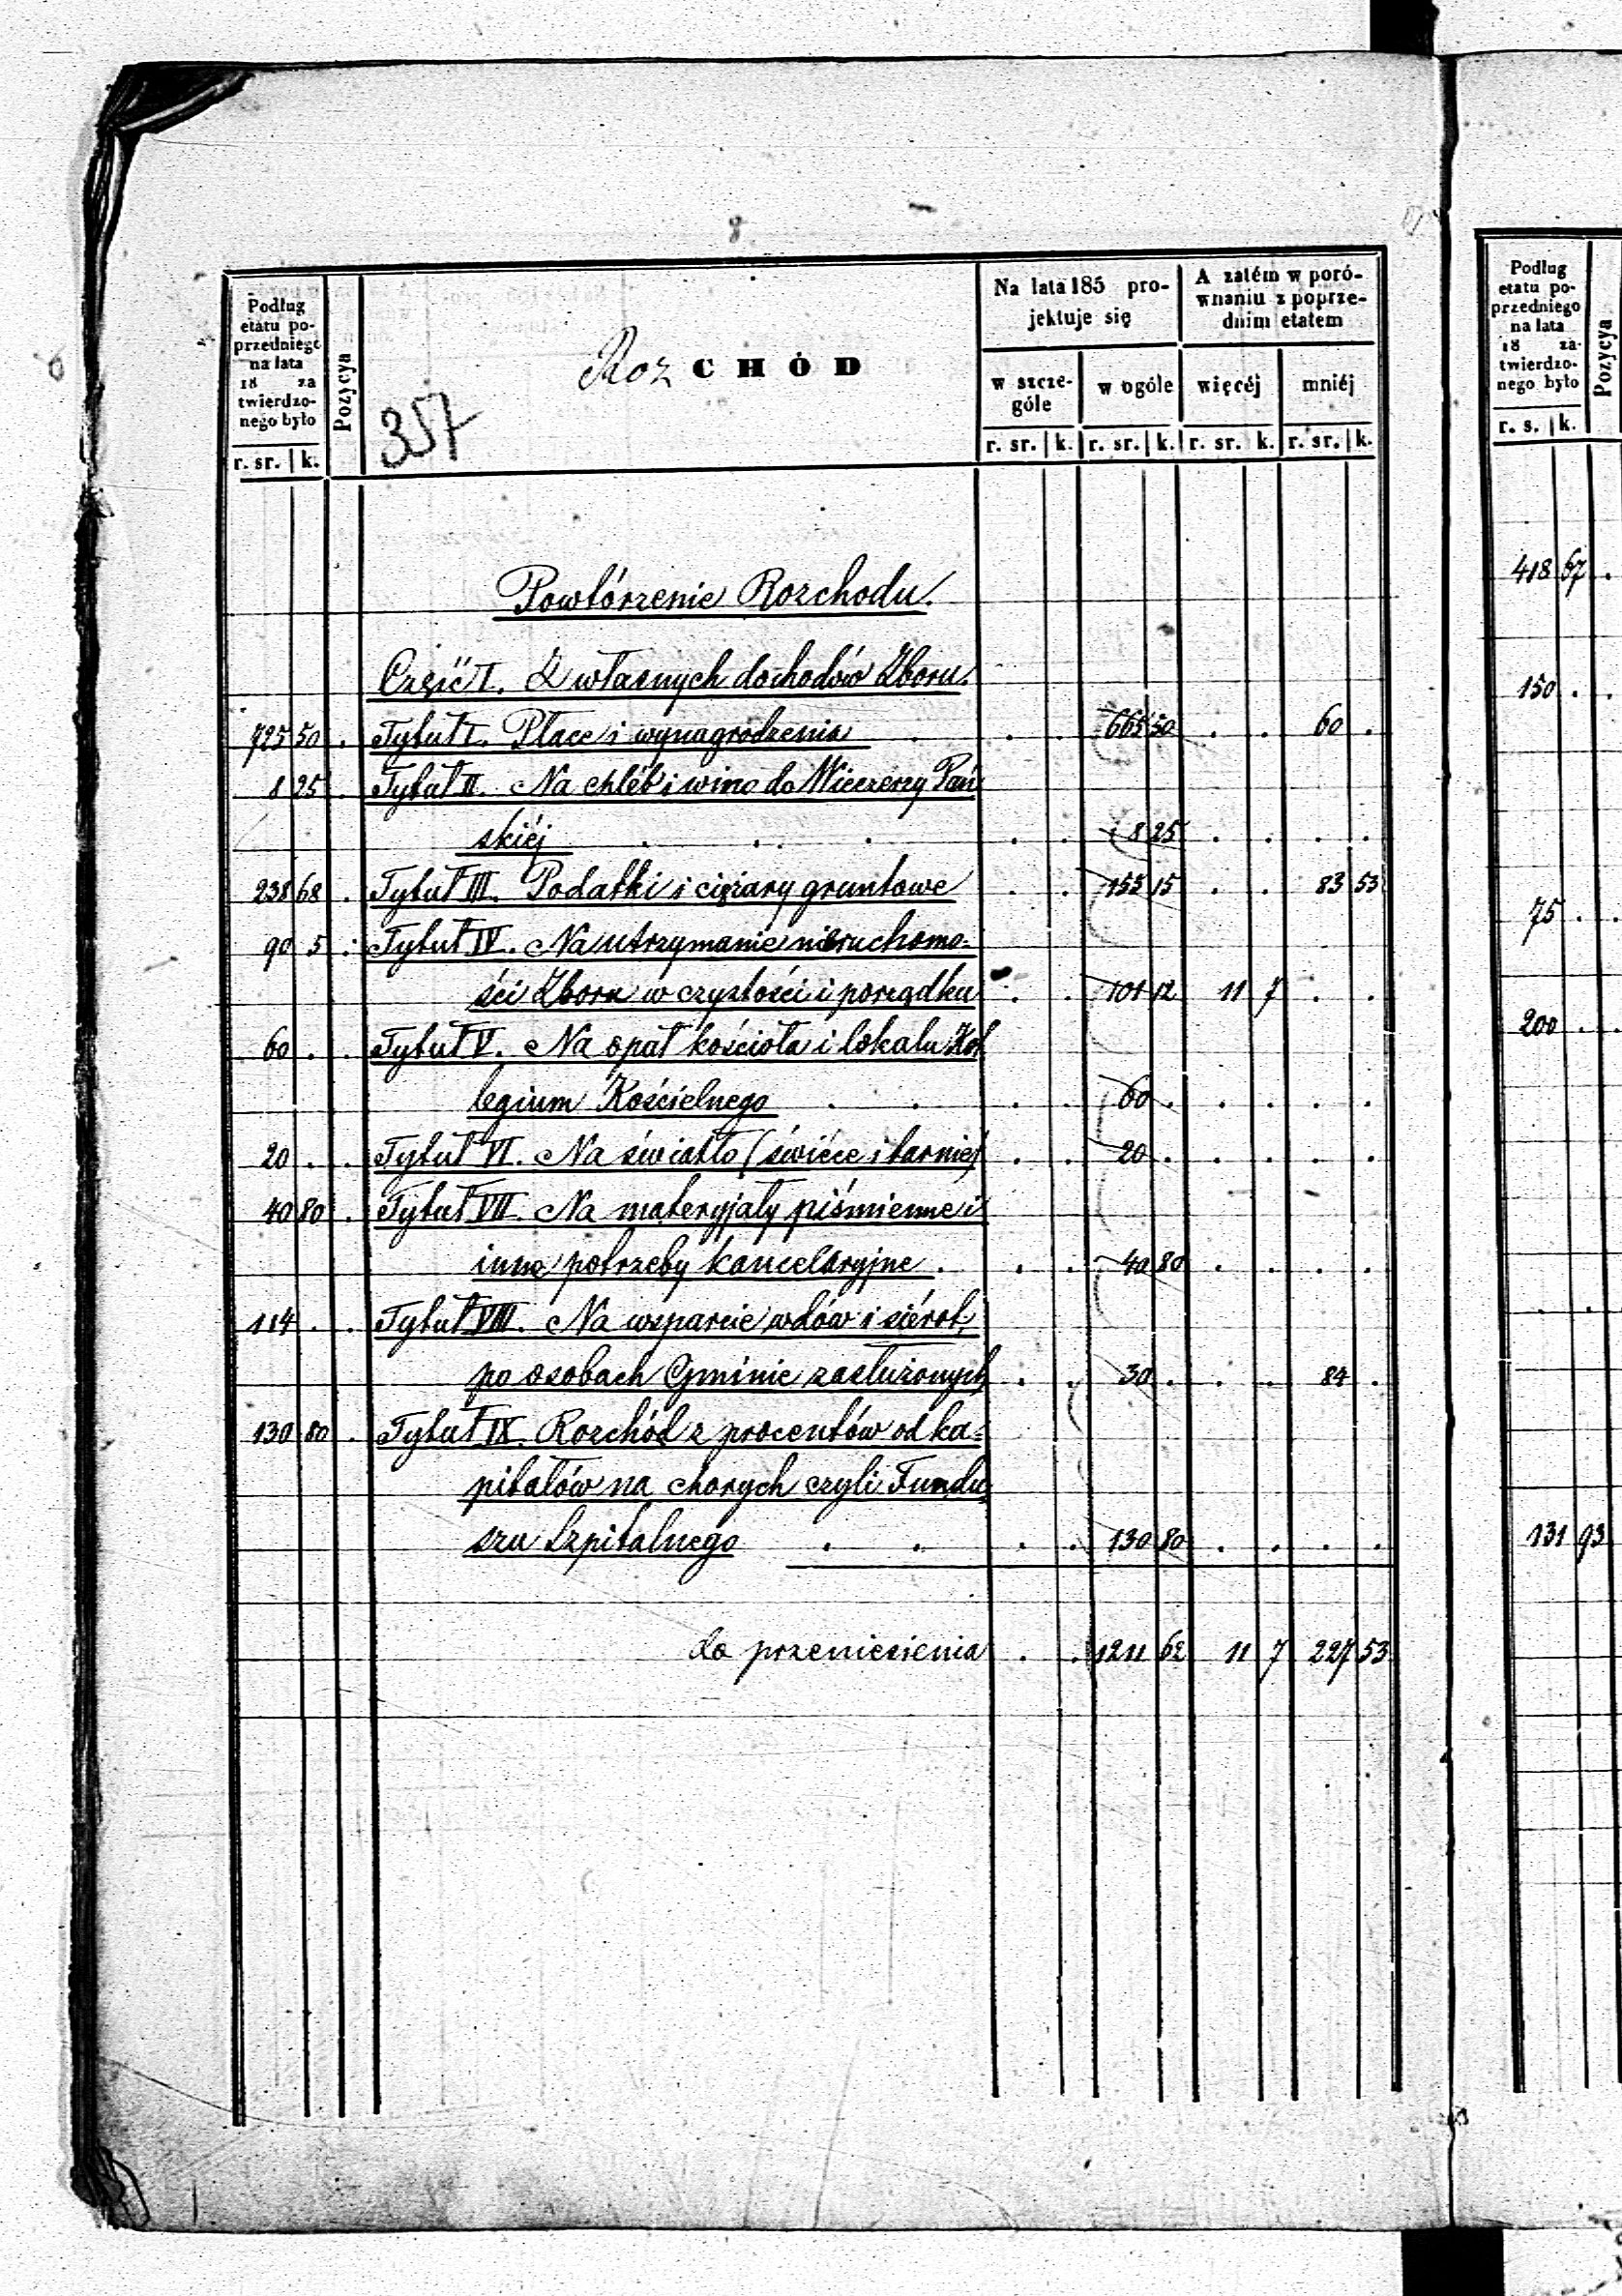 8
Podług etatu poprzedniego na lata 18 za twierdzonego było
r. sr. | k.
Pozycya
Roz CHÓD
357
Na lata 185 projektuje się
w szczególe
r. sr. | k.
w ogóle
r. sr. | k.
A zatém w porównaniu z poprzednim etatem
więcéj
r. sr. | k.
mniéj
r. sr. | k.
Powtórzenie Rozchodu.
Część I. Z własnych dochodów Zboru.
725 50 . Tytuł I. Płace i wynagrodzenia . . . 665 50 . . 60 .
8 25 . Tytuł II. Na chléb i wino do Wieczerzy Pań
skiéj . . . . . 8 25 . . . .
238 68 . Tytuł III. Podatki i ciężary gruntowe . . 155 15 . . 83 53
90 5 . Tytuł IV. Na utrzymanie nieruchomo-
ści Zboru w czystości i porządku . . 101 12 11 7 . .
60 . . Tytuł V. Na opał kościoła i lokalu Kol
legium Kościelnego . . . . 60 . . . . .
20 . . Tytuł VI. Na światło (świéce i łarnie) . . 20 . . . . .
40 80 . Tytuł VII. Na materyjały piśmienne i
inne potrzeby kancelaryjne . . . 40 80 . . . .
114 . . Tytuł VIII. Na wsparcie wdów i siérot,
po osobach Gminie zasłużonych . . 30 . . . 84 .
130 80 . Tytuł IX. Rozchód z procentów od ka-
pitałów na chorych czyli Fundu
szu Szpitalnego . . . . 130 80 . . . .
do przeniesienia . . 1211 62 11 7 227 53
Podług etatu poprzedniego na lata 18 zatwierdzonego było
r. s. | k.
Pozycya
418 67 .
150 . .
75 . .
200 . .
. .
131 93